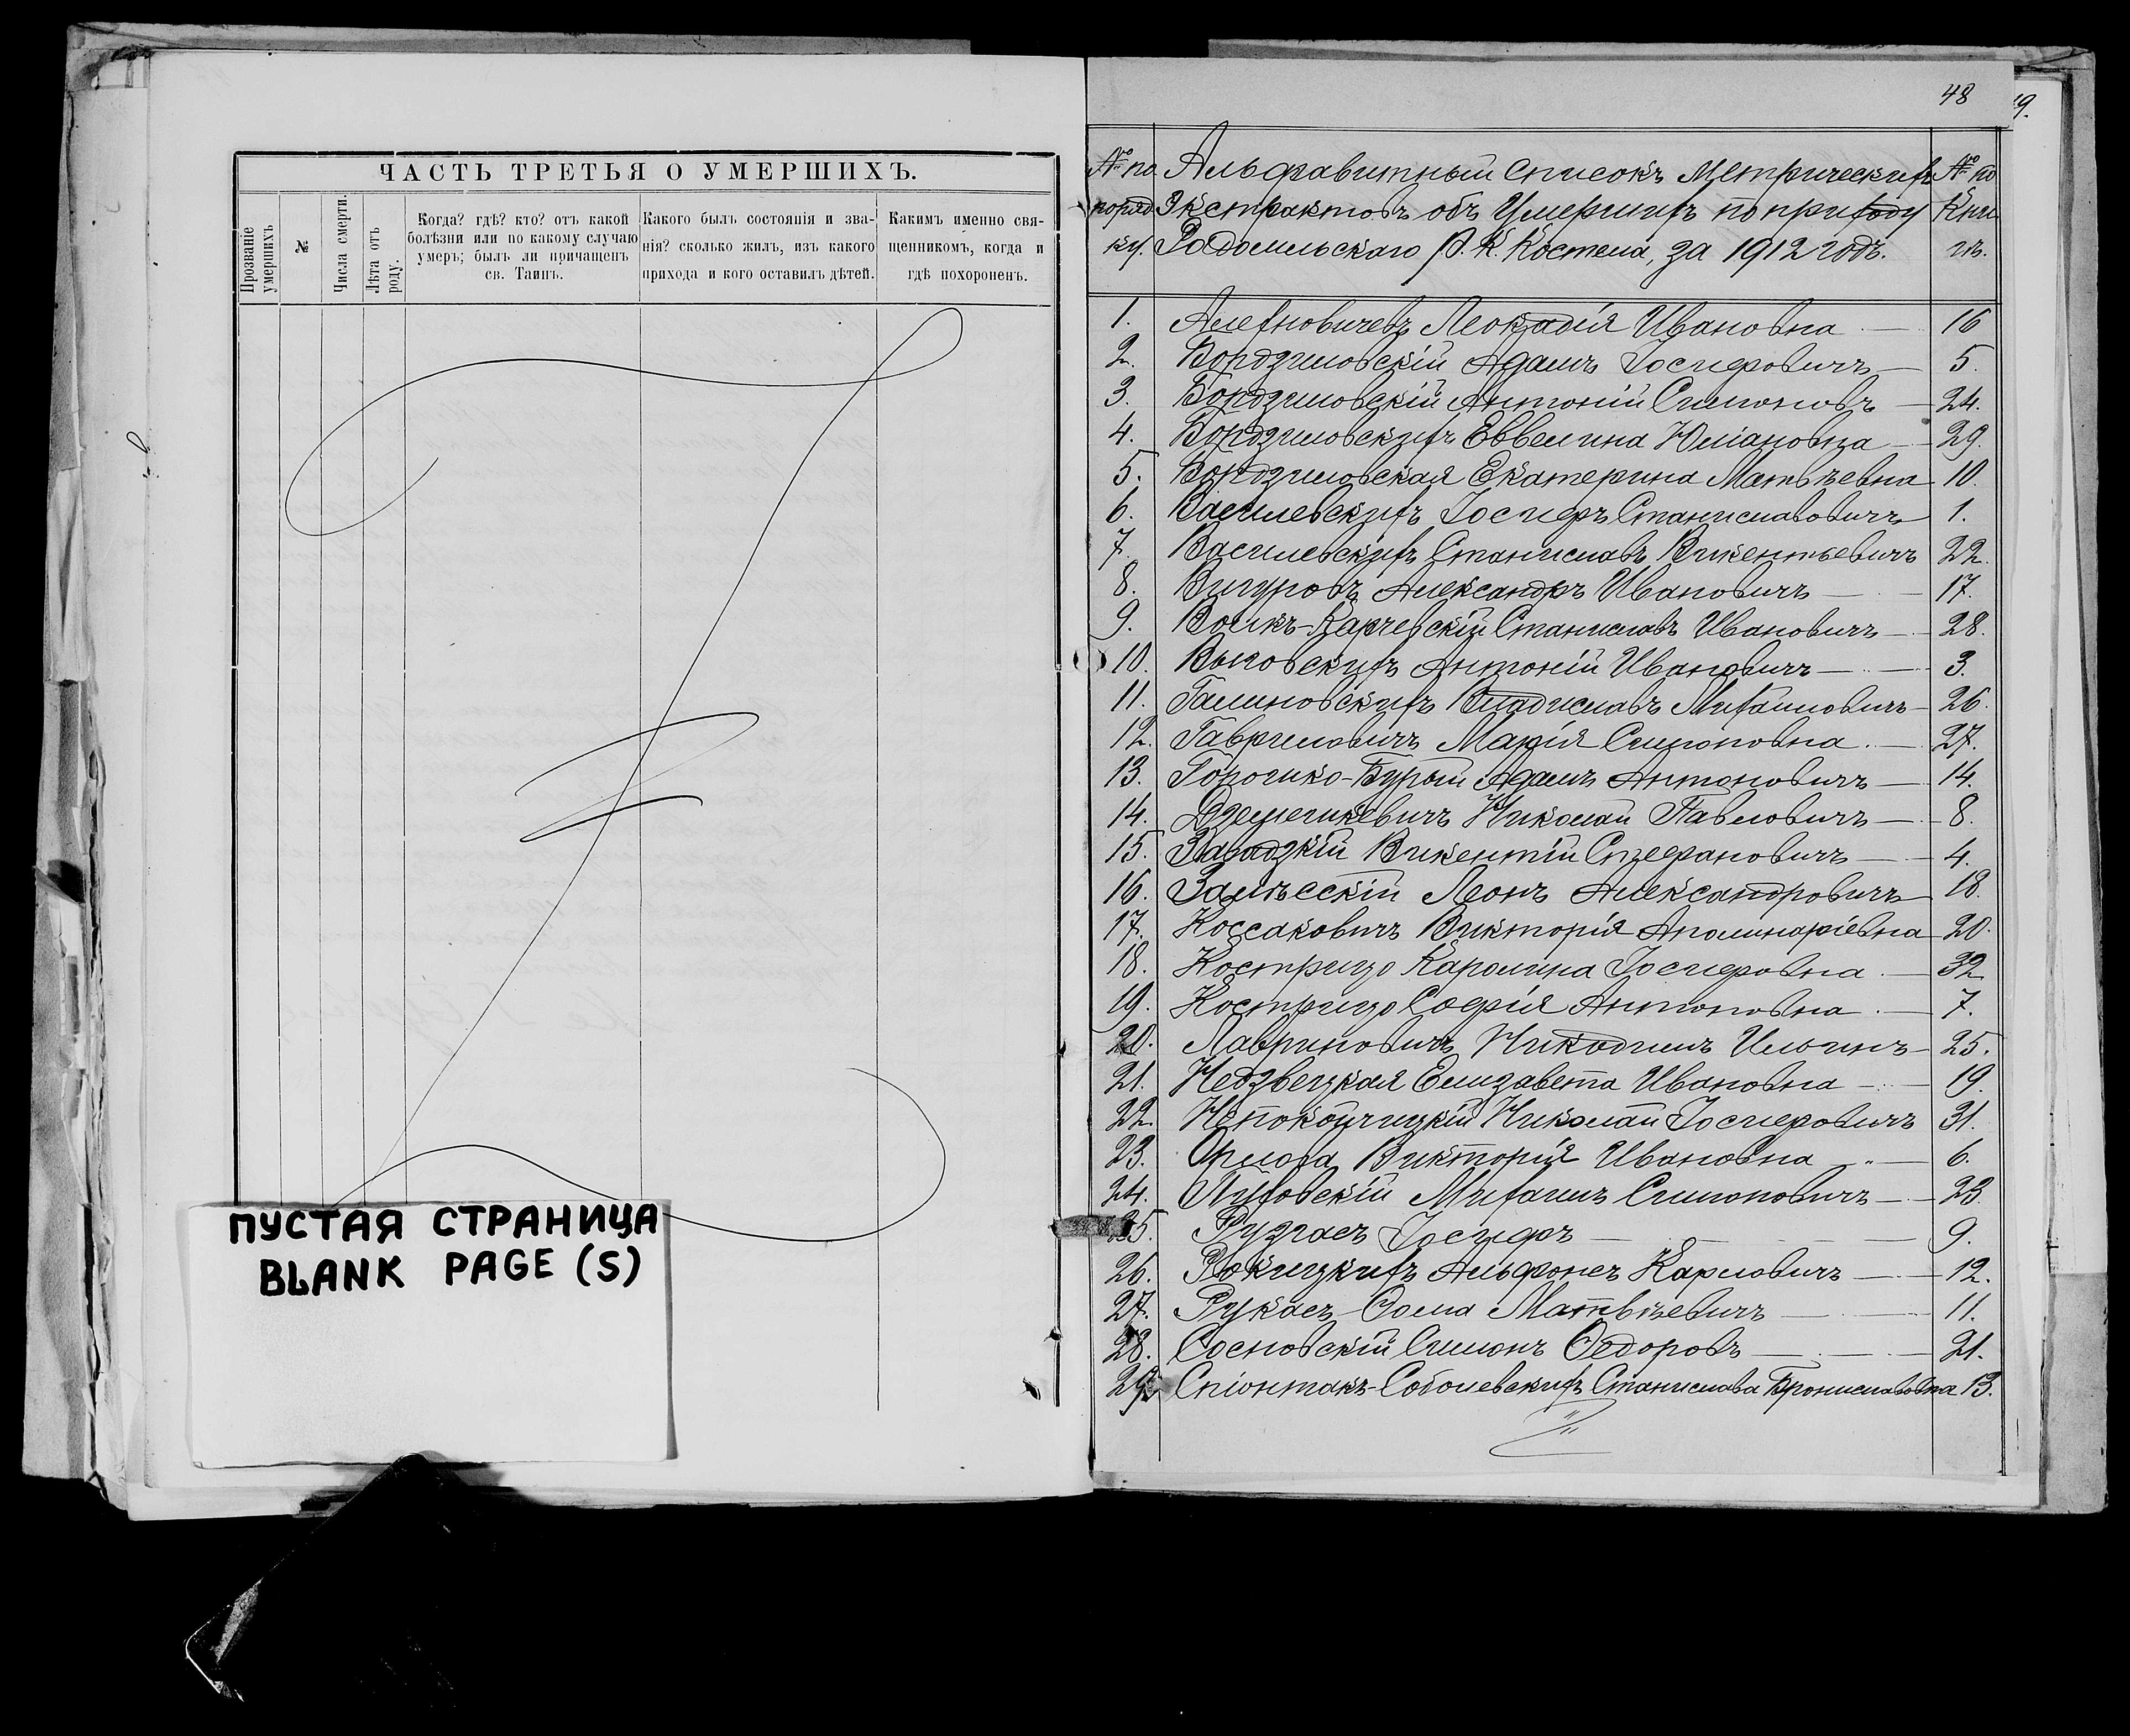 ЧАСТЬ ТРЕТЬЯ О УМЕРШИХЪ.
Прозваніе умершихъ
№
Числа смерти.
Лѣта отъ роду.
Когда? гдѣ? кто? отъ какой
болѣзни или по какому случаю
умеръ; былъ ли причащенъ
св. Таинъ.
Какого былъ состоянія и зва-
нія? сколько жилъ, изъ какого
прихода и кого оставилъ дѣтей.
Какимъ именно свя-
щенникомъ, когда и
гдѣ похороненъ.
ПУСТАЯ СТРАНИЦА
BLANK PAGE (S)
48
19.
№ по Альфавитный списокъ Метрическихъ № по
поряд Экстрактовъ объ Умершихъ по приходу Кни
ку. Радомыльскаго Р. К. Костела, за 1912 годъ. гѣ.
1. Алехновичевъ Леокадія Ивановна 16
2. Бордзиловскій Адамъ Іосифовичъ 5.
3. Бордзиловскій Антоній Симоновъ 24.
4. Бордзиловскихъ Еввелина Юліановна 29.
5. Бордзиловская Екатерина Матвѣевна 10.
6. Василевскихъ Іосифъ Станиславовичъ 1.
7. Василевскихъ Станиславъ Викентьевичъ 22.
8. Вигуровъ Александръ Ивановичъ 17.
9. Волкъ-Карчевскій Станиславъ Ивановичъ 28.
10. Выковскихъ Антоній Ивановичъ 3.
11. Галиновскихъ Владиславъ Михаиловичъ 26.
12. Гавриловичъ Марія Симоновна 27.
13. Горошко-Бурый Адамъ Антоновичъ 14.
14. Николай Павловичъ 8.
15. Викентій Стефановичъ 4.
16. Залѣсскій Леонъ Александровичъ 18.
17. Коссаковичъ Викторія Аполинаріевна 20.
18. Кострицо Каролина Іосифовна 32
19. Кострицо Софія Антоновна 7.
20. Лавриновичъ Никодимъ Ильинъ 25.
21. Недзвецкая Елизавета Ивановна 19.
22. Непокойчицкій Николай Іосифовичъ 31.
23. Орлова Викторія Ивановна 6.
24. Пуховскій Михаилъ Симоновичъ 23.
25. Іосифъ 9.
26. Рокицкихъ Альфонсъ Карловичъ 12.
27. Рукасъ Ѳома Матвѣевичъ 11.
28. Сосновскій Симонъ Ѳедоровъ 21.
29. Спіонтакъ-Соболевскихъ Станислава Брониславовна 13.